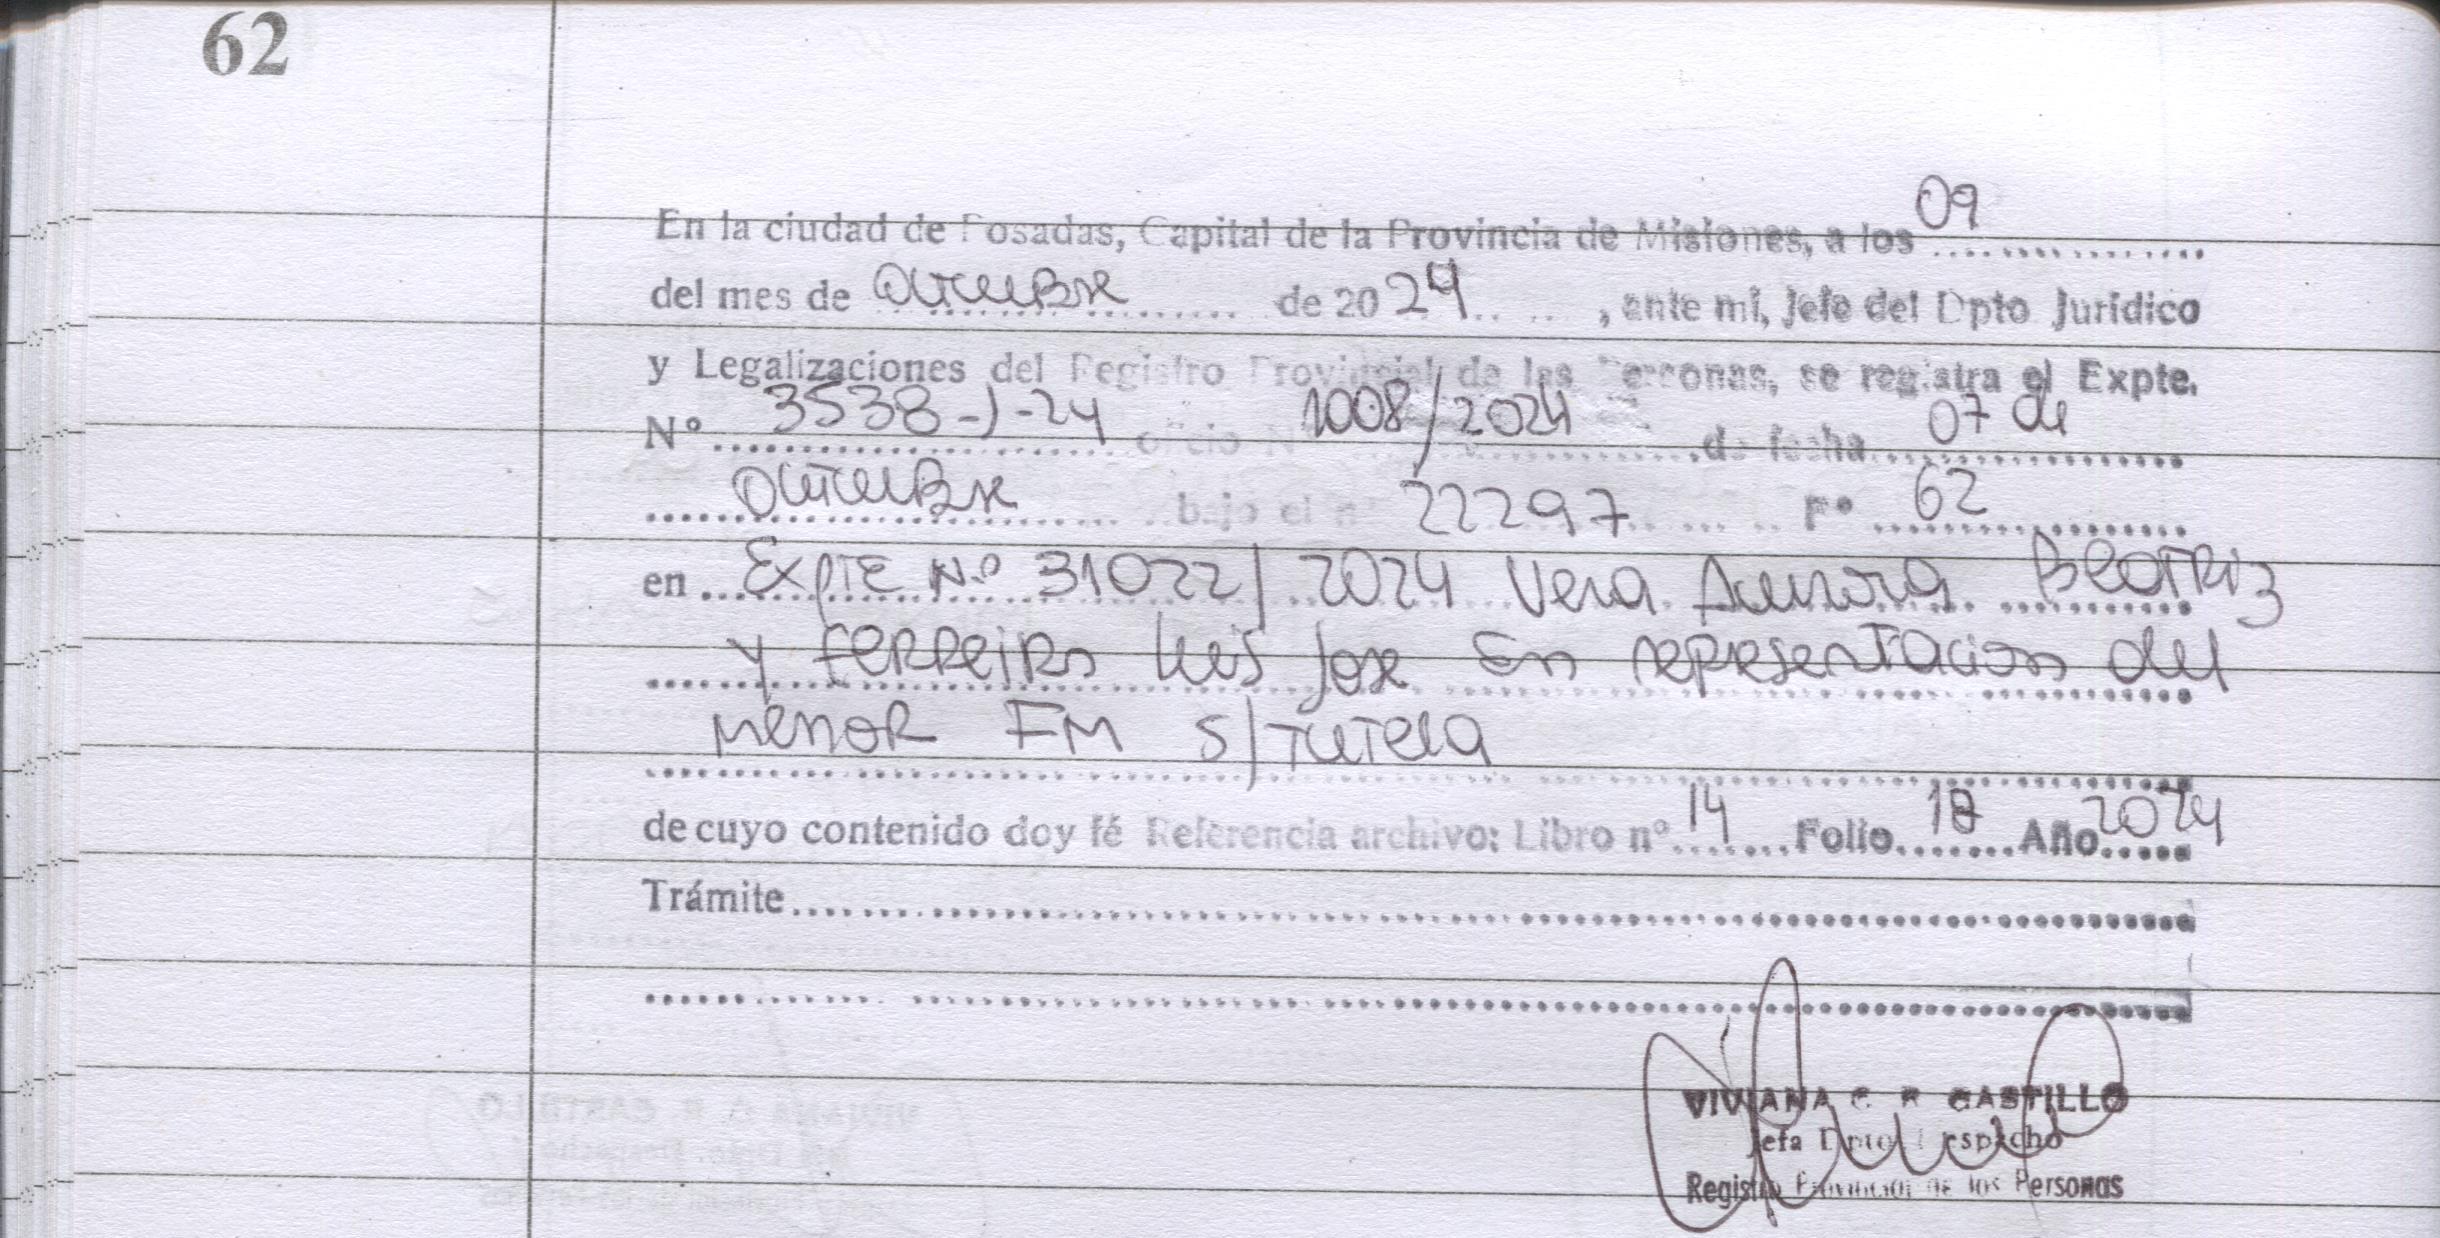 62
En la ciudad de Posadas, Capital de la Provincia de Misiones, a los 09
del mes de octubre de 2024, ante mi, Jefe del Dpto Jurídico
y Legalizaciones del Registro Provincial de las Personas, se registra el Expte.
Nº 3538-J-24 oficio Nº 1008/2024 de fecha 07 de
octubre bajo el nº 22297 Fº 62
en Expte Nº 31022/2024 Vera Aurora Beatriz
y Ferreira Luis Jose En representacion del
menor FM s/tutela
de cuyo contenido doy fé Referencia archivo: Libro nº 14 Folio Año 2024
Trámite
VIVIANA CASTILLO
Jefa Dpto Despacho
Registro Provincial de las Personas